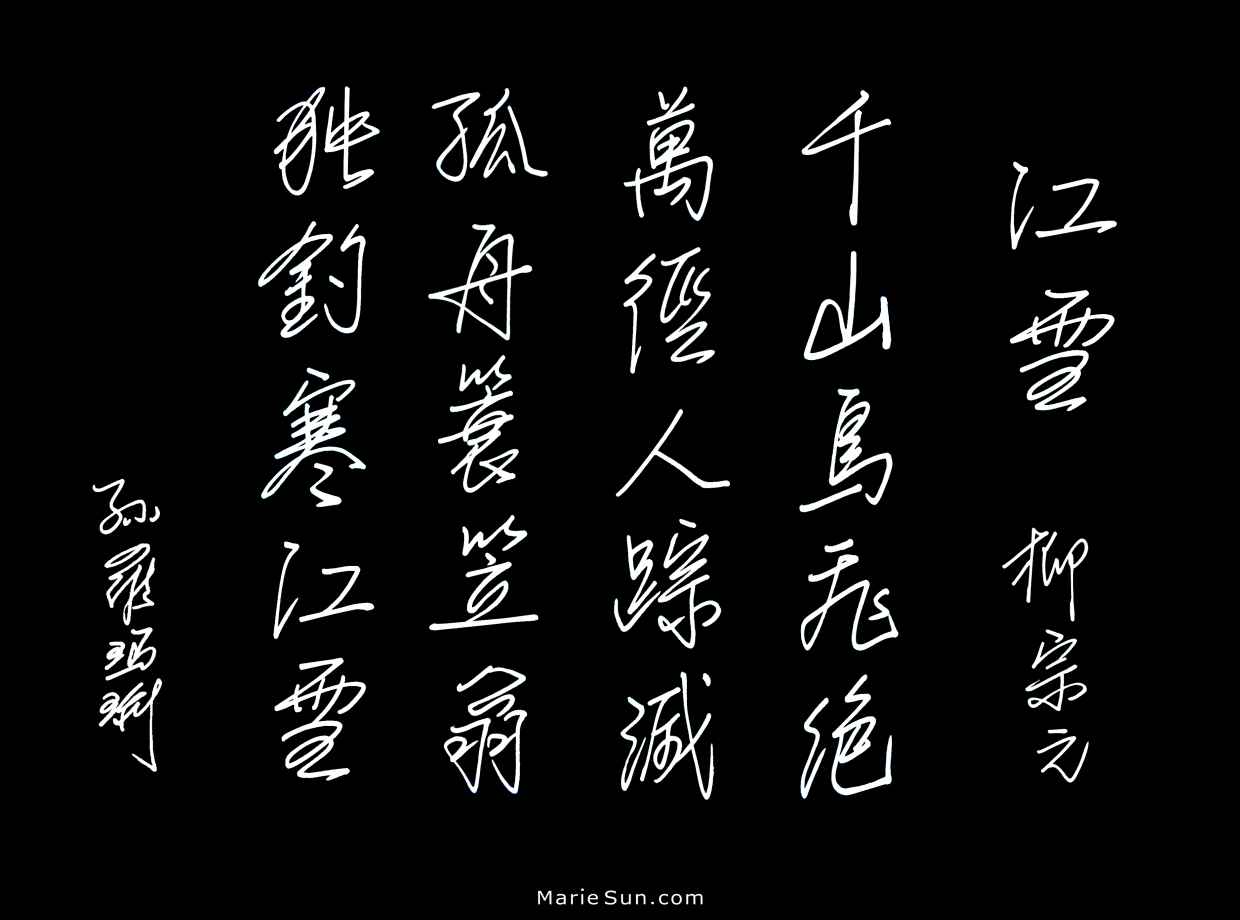 江雪 柳宗元
千山鳥飛絕
萬徑人踪滅
孤舟簑笠翁
独釣寒江雪
孙羅瑪琍
MarieSun.com